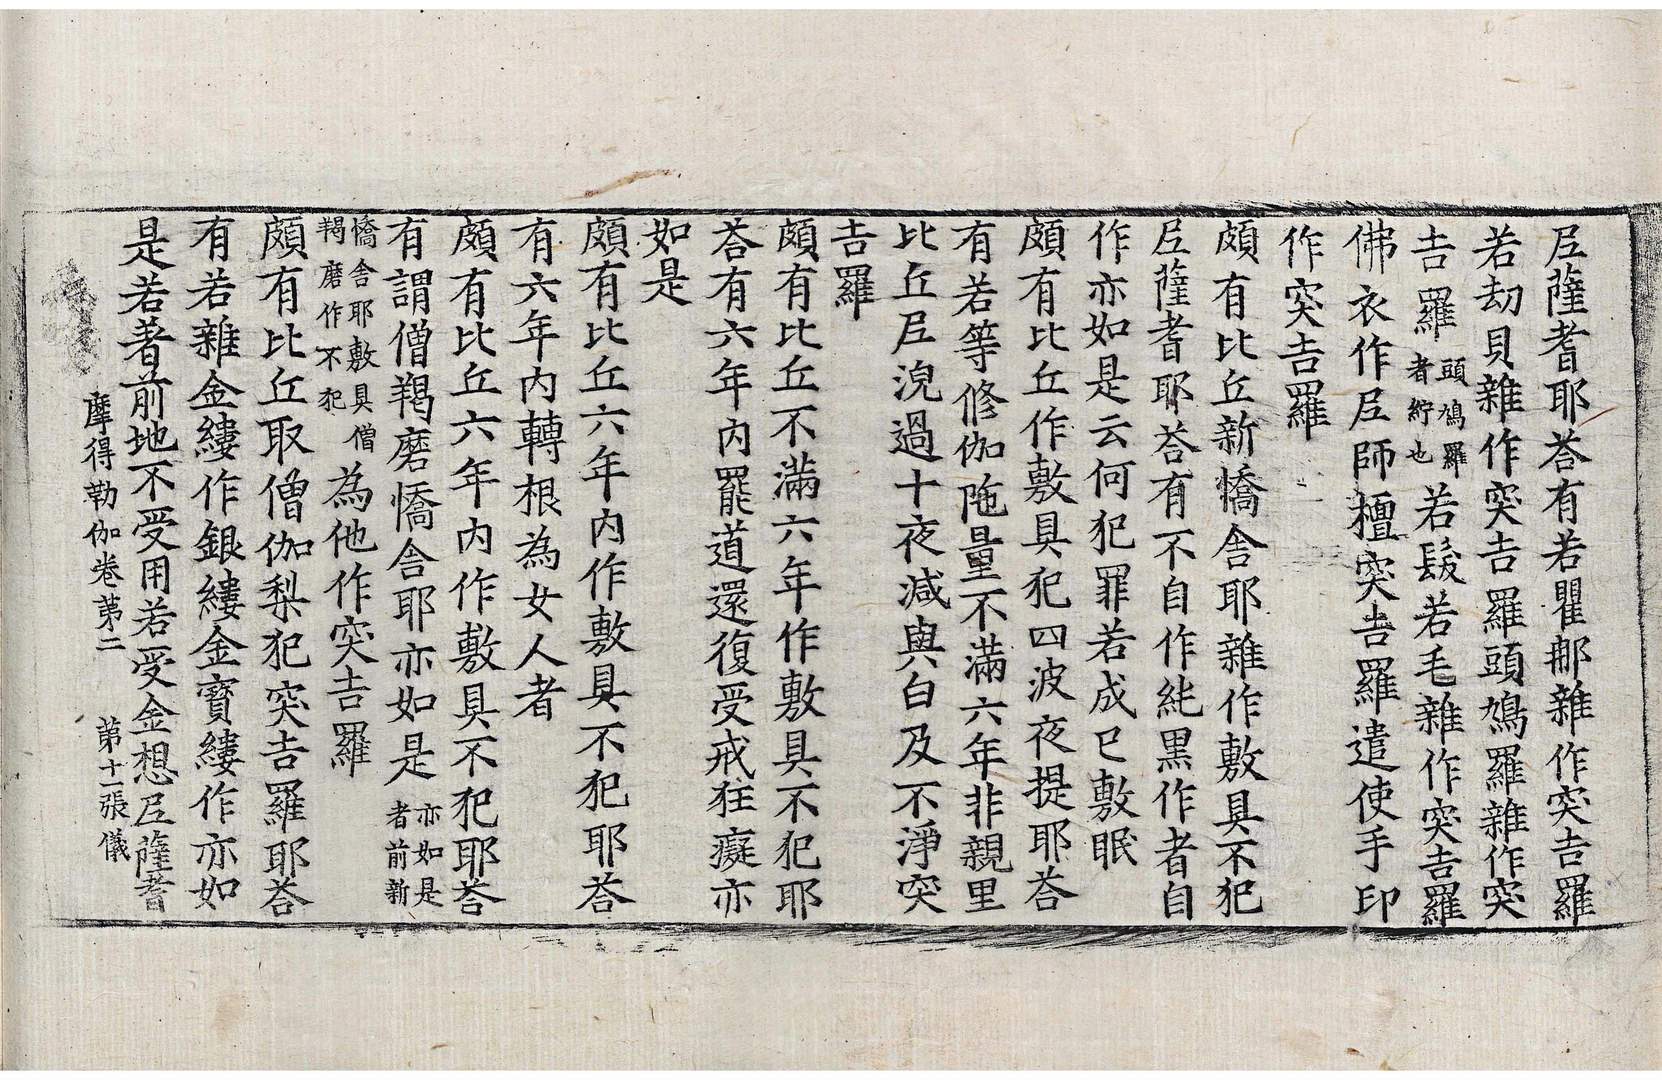 尼薩耆耶荅有若瞿那雜作突吉羅
若劫貝雜作突吉羅頭鳩羅雜作突
吉羅頭鳩羅者紵也若髮若毛雜作突吉羅
佛衣作尼師檀突吉羅遣使手印
作突吉羅
頗有比丘新憍舍耶雜作敷具不犯
尼薩耆耶荅有不自作純黑作者自
作亦如是云何犯罪若成已敷眠
頗有比丘作敷具犯四波夜提耶荅
有若等修伽陁量不滿六年非親里
比丘尼浣過十夜減與白及不淨突
吉羅
頗有比丘不滿六年作敷具不犯耶
荅有六年內罷道還復受戒狂癡亦
如是
頗有比丘六年內作敷具不犯耶荅
有六年內轉根為女人者
頗有比丘六年內作敷具不犯耶荅
有謂僧羯磨憍舍耶亦如是亦如是者前新
憍舍耶敷具僧羯磨作不犯為他作突吉羅
頗有比丘取僧伽梨犯突吉羅耶荅
有若雜金縷作銀縷金寶縷作亦如
是若著前地不受用若受金想尼薩耆
摩得勒伽卷第二 第十一張儀